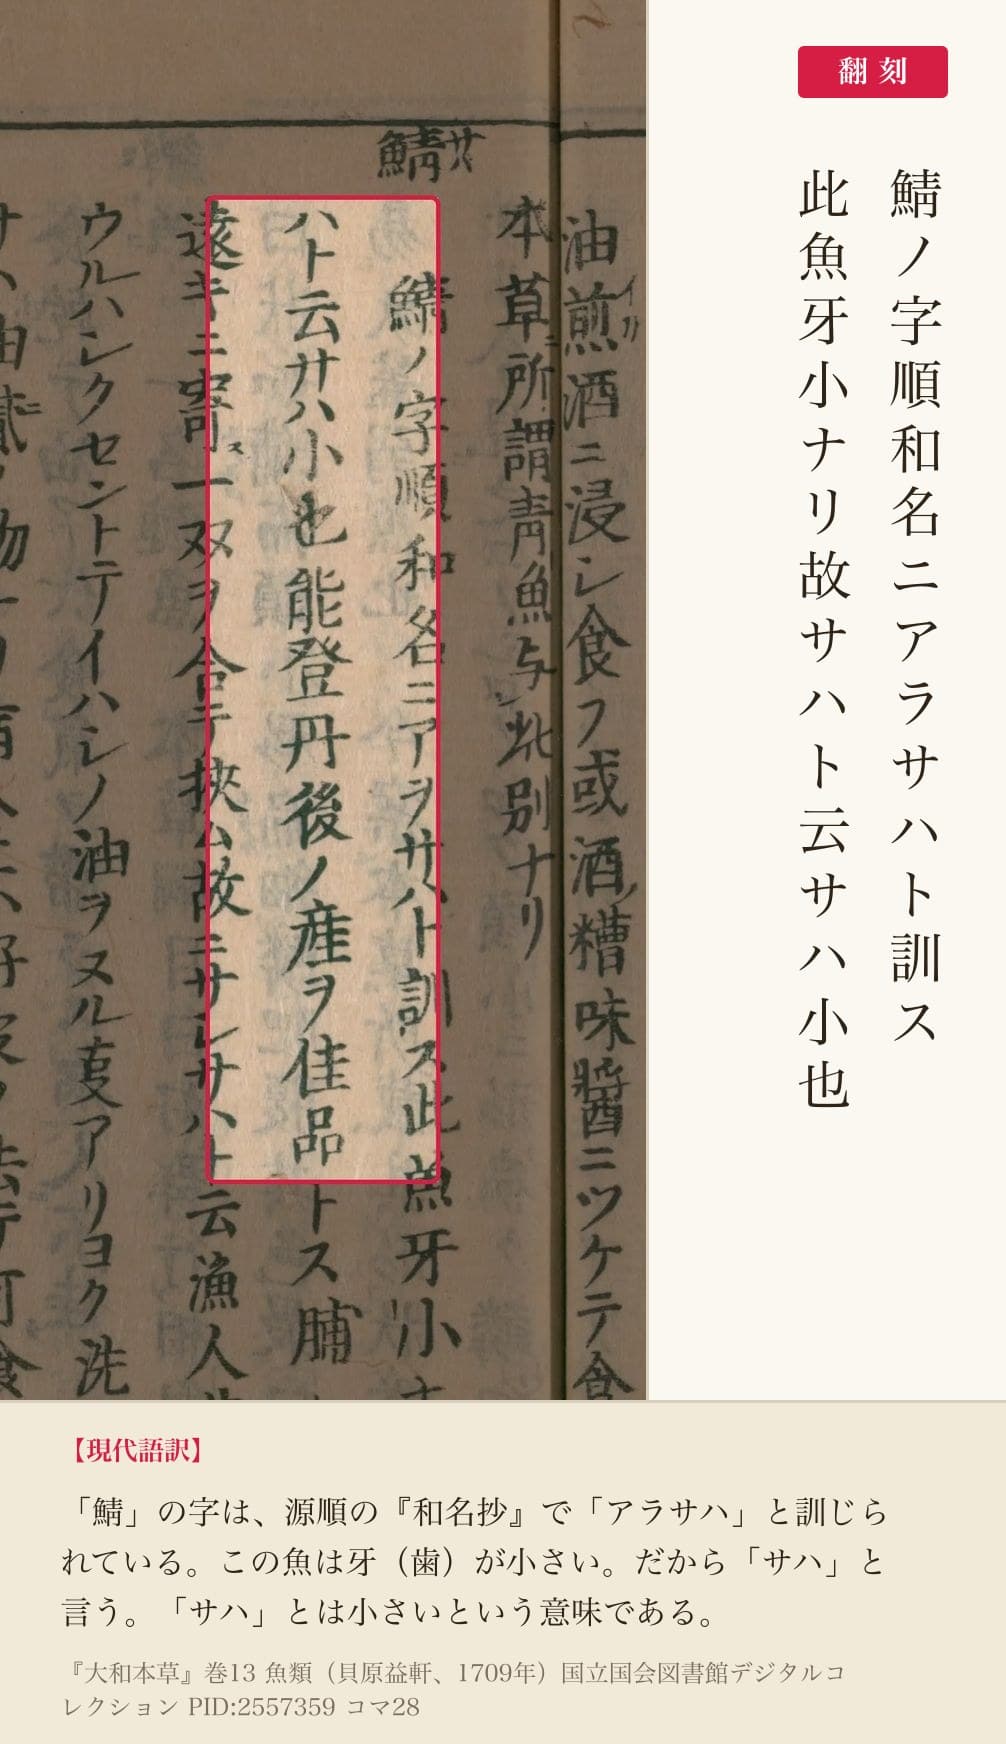 鯖サ
油煎酒ニ浸シ食フ或酒糟味醬ニツケテ食
イリ
本草所謂青魚与此別ナリ
鯖ノ字順和名ニアヲサハト訓ス此魚牙小
ハト云サハ小也能登丹後ノ産ヲ佳品トス脯
遠キニ寄ス一双ヲ合テ挾ム故ニサシサハト云漁人
ウルハシクセントテイハシノ油ヲヌル叓アリヨク洗
翻刻
鯖ノ字順和名ニアラサハト訓ス
此魚牙小ナリ故サハト云サハ小也
【現代語訳】
「鯖」の字は、源順の『和名抄』で「アラサハ」と訓じら
れている。この魚は牙（歯）が小さい。だから「サハ」と
言う。「サハ」とは小さいという意味である。
『大和本草』巻13 魚類（貝原益軒、1709年）国立国会図書館デジタルコ
レクション PID:2557359 コマ28